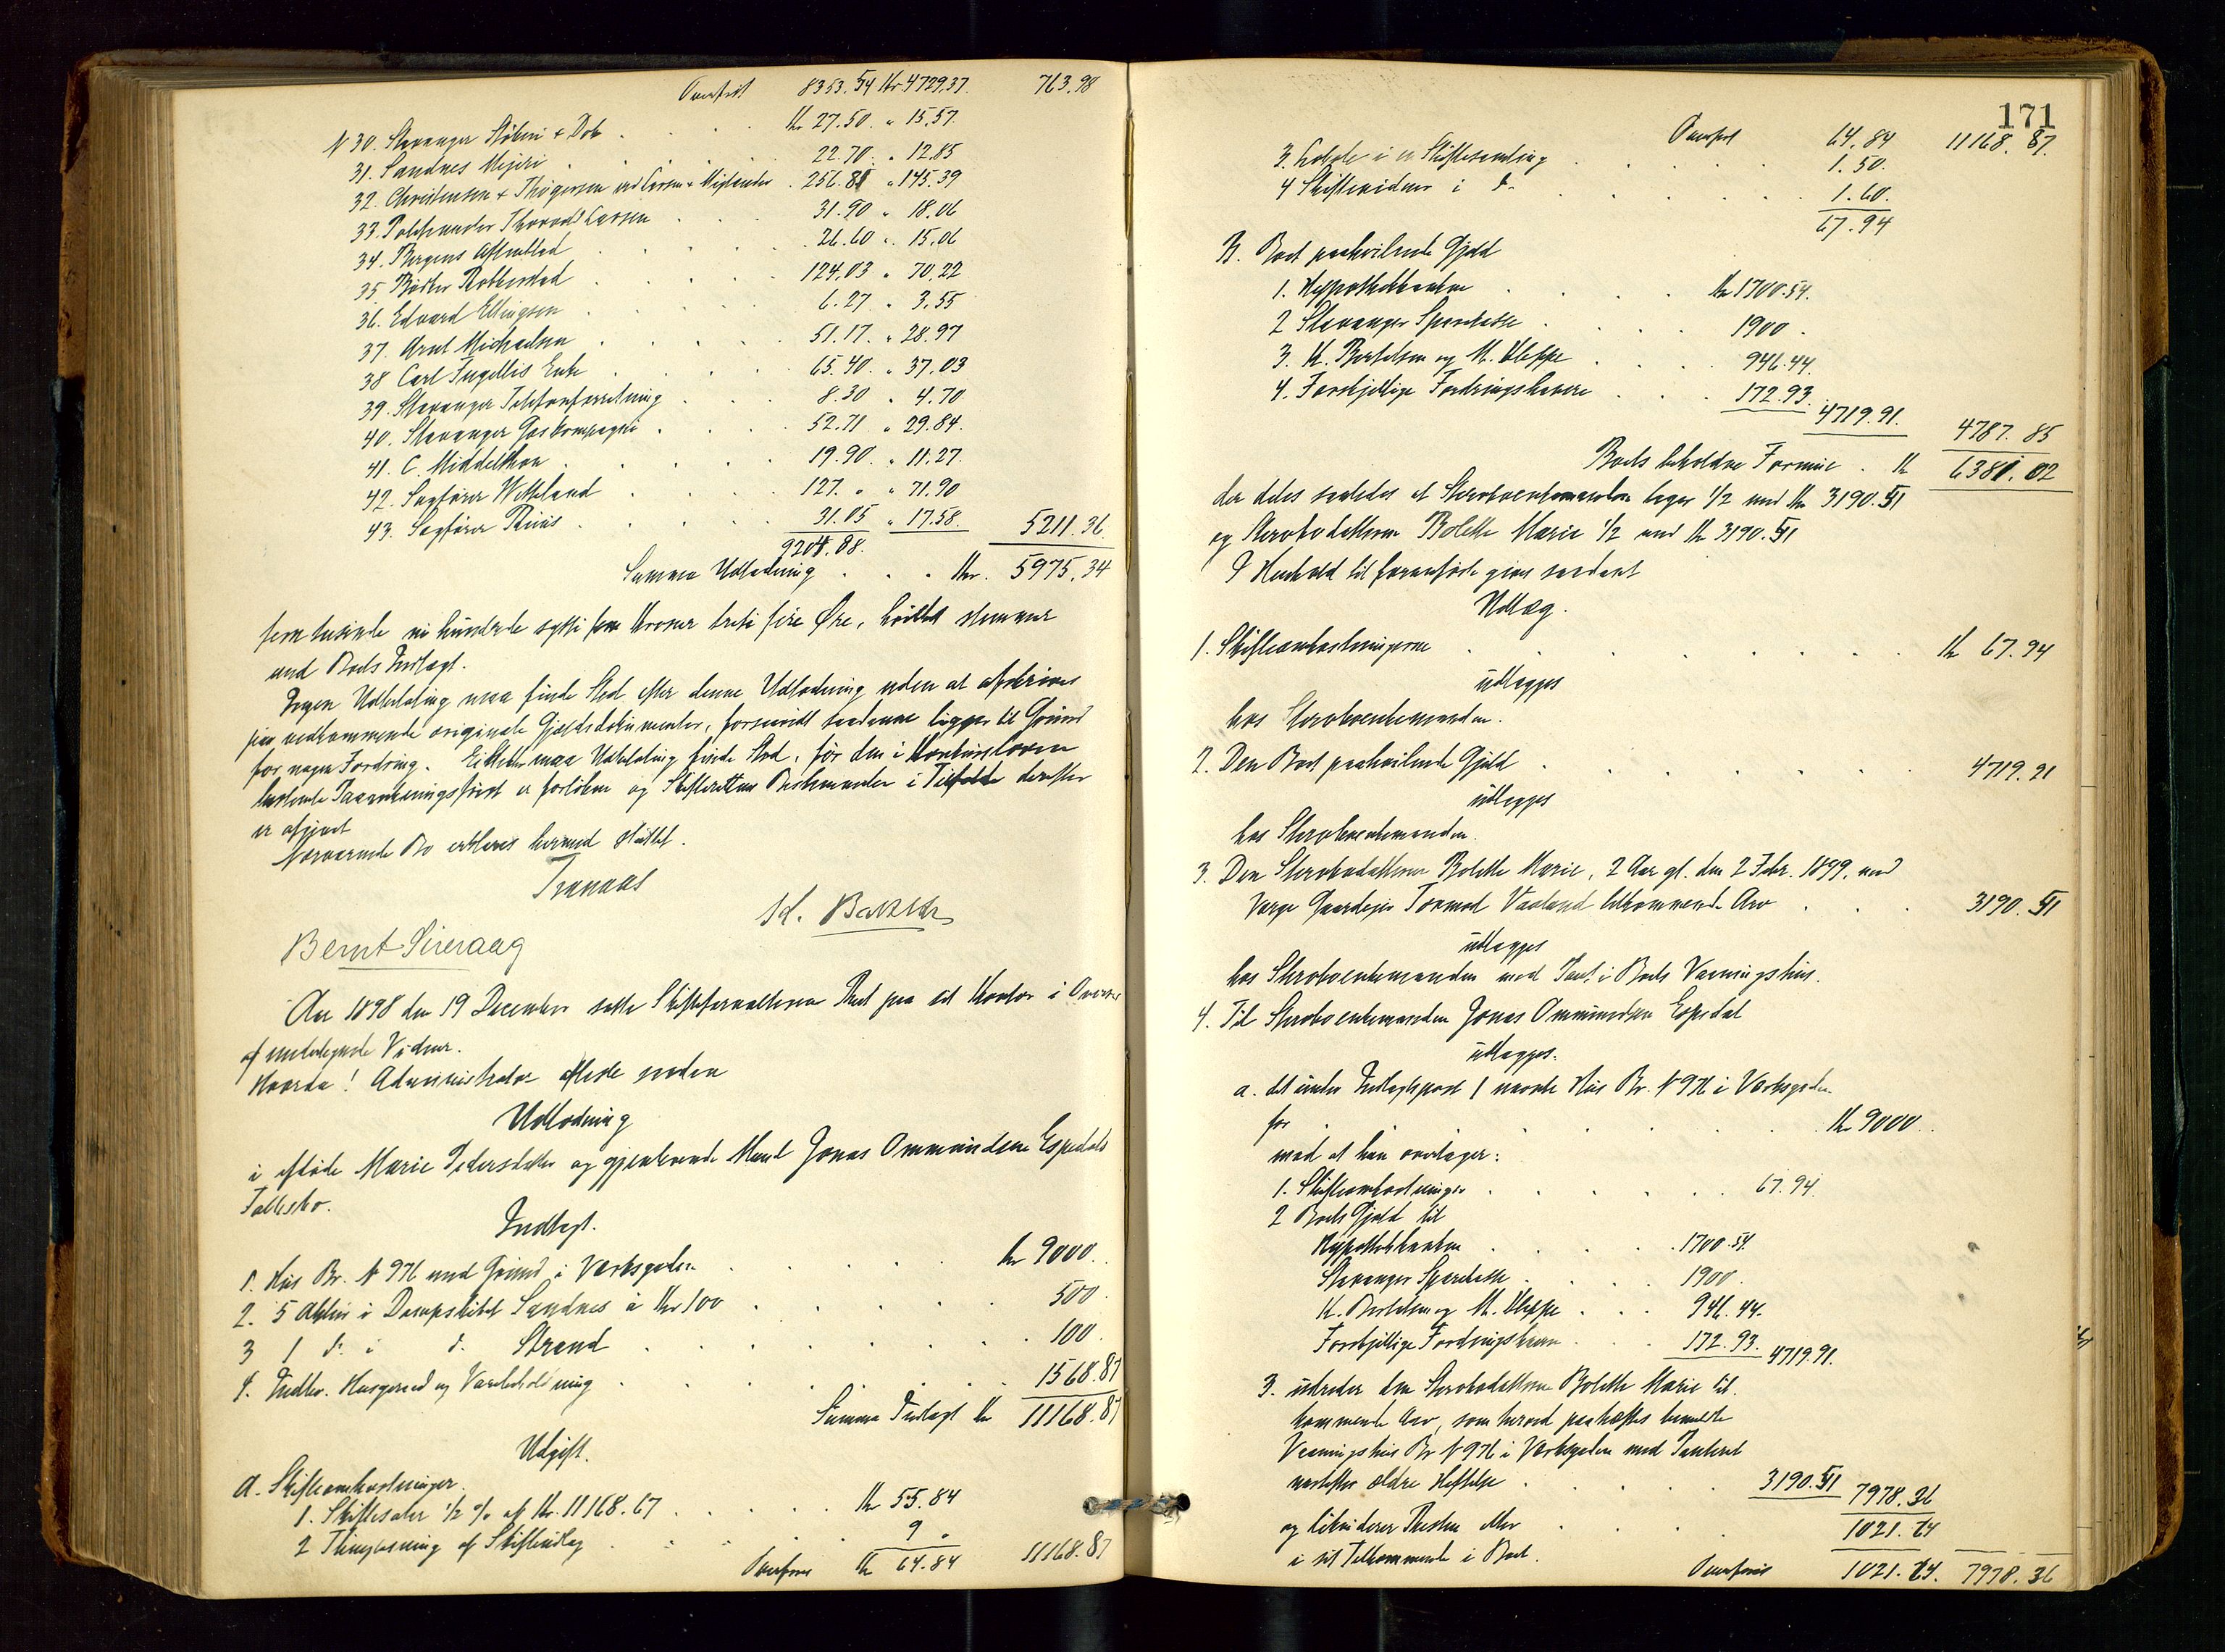 Overført 8353.54 Kr 4729.37. 763.98
N 30. Stavanger Støberi & Dok . . . Kr 27.50. " 15.57.
31. Sandnes Mejeri . . . 22.70. " 12.85
32. Christensen & Thøgersen ved Larsen & . 256.81 " 145.39
33. Thorvald Larsen . . . 31.90 " 18.06
34. Bergens Aftenblad . . . 26.60 " 15.06
35. Bødker Rabbersted . . . 124.03 " 70.22
36. Edvard Ellingsen . . . 6.27 " 3.55
37. Arnt Michaelsen . . . 51.17. " 28.97
38 Carl Fugellis Enke . . . 65.40. " 37.03
39. Stavanger Telefonforretning . . . 8.30 " 4.70
40. Stavanger Gaskompagni . . . 52.71 " 29.84.
41. C. Middelthon . . . 19.90. " 11.27.
42. Sagfører Welleland . . . 127. " " 71.90
43. Sagfører Riis . . . 31.05 " 17.58. 5211.36
9204.88.
Summa Udlodning . . . Kr. 5975.34
fem tusinde ni hundrede sytti fem Kroner treti fire Øre, hvilket stemmer
med Boets Indtægt.
Ingen Udbetaling maa finde Sted efter denne Udlodning uden at afskrives
paa vedkommende originale Gjældsdokumenter, forsaavidt saadanne ligger til Grund
for nogen Fordring. Ei heller maa Udbetaling finde Sted, før den i Konkursloven
bestemte Paaankningsfrist er forløben og Skifterettens Bestemmelse i Tilfælde derefter
er afgivet
Nærværende Bo erklæres hermed sluttet.
Tranaas
Bernt Sireraag
Aar 1898 den 19 December satte Skifteforvalteren Ret paa sit Kontor i Overvær
af undertegnede Vidner.
Hvorda! Administrator afsluttede saaden
Udlodning
i afdøde Marie Pedersdatter og gjenlevende Mand Jonas Ommundsen Espedals
Fællesbo.
Indtægt.
1. Hus Br. N 976 med Grund i Verksgaden . . . Kr 9000.
2. 5 Aktier i Dampskibet Sandnes à Kr 100 . . . 500.
3 1 do. i do. Strand . . . 100.
4. Indbo. Husgeraad og Varebeholdning . . . 1568.87
Summa Indtægt Kr 11168.87
Udgift.
A. Skifteomkostninger.
1. Skiftesaler 1/2 % af Kr. 11168.67 . . . Kr 55.84
2 Thinglæsning af Skifteudlæg . . . 9 "
Overføres Kr 64.84 11168.87
171
Overført 64.84 11168.87.
3. Lokale i en Skiftesamling . . . 1.50.
4 Skiftevidner i do. . . . 1.60.
67.94
B. Boet paahvilende Gjæld
1. Hypothekbanken . . . Kr 1700.54.
2 Stavanger Sparekasse . . . 1900.
3. K. Bertelsen og M. Kleppe . . . 946.44.
4. Forskjellige Fordringshavere . . . 172.93.
4719.91. 4787.85
Boets beholdne Formue . Kr 6381.02
der deles saaledes at Stervboenkemanden tager 1/2 med Kr 3190.51
og Stervbodatteren Bolette Marie 1/2 med Kr 3190.51
I Henhold til foranførte gives saadant
Udlæg.
1. Skifteomkostningerne . . . Kr 67.94
udlægges
hos Stervboenkemanden.
2. Den Boet paahvilende Gjæld . . . 4719.91
udlægges
hos Stervboenkemanden.
3. Den Stervbodatteren Bolette Marie, 2 Aar gl. den 2 Febr. 1899, med
Verge Gaardejer Tormod Vaaland tilkommende Arv . . . 3190.51
udlægges
hos Stervboenkemanden med Pant i Boets Vaaningshus.
4. Til Stervboenkemanden Jonas Ommundsen Espedal
udlægges.
a. det under Indtægtspost 1 nævnte Hus Br. N 976 i Verksgaden
for . . . Kr 9000..
mod at han overtager:
1. Skifteomkostninger . . . 67.94.
2 Boets Gjæld til
Hypothekbanken . . . 1700.54.
Stavanger Sparekasse . . . 1900.
K. Bertelsen og M. Kleppe . . . 946.44.
Forskjellige Fordringshavere . . . 172.93. 4719.91.
3. udreder den Stervbodatteren Bolette Marie til-
kommende Arv, som herved paahæftes bemeldte
Vaaningshus Br N 976 i Verksgaden med Panteret
næstefter ældre Heftelse . . . 3190.51 7978.36
og likviderer Resten eller . . . 1021.64
i sit Tilkommende i Boet.
Overføres 1021.64. 7978.36